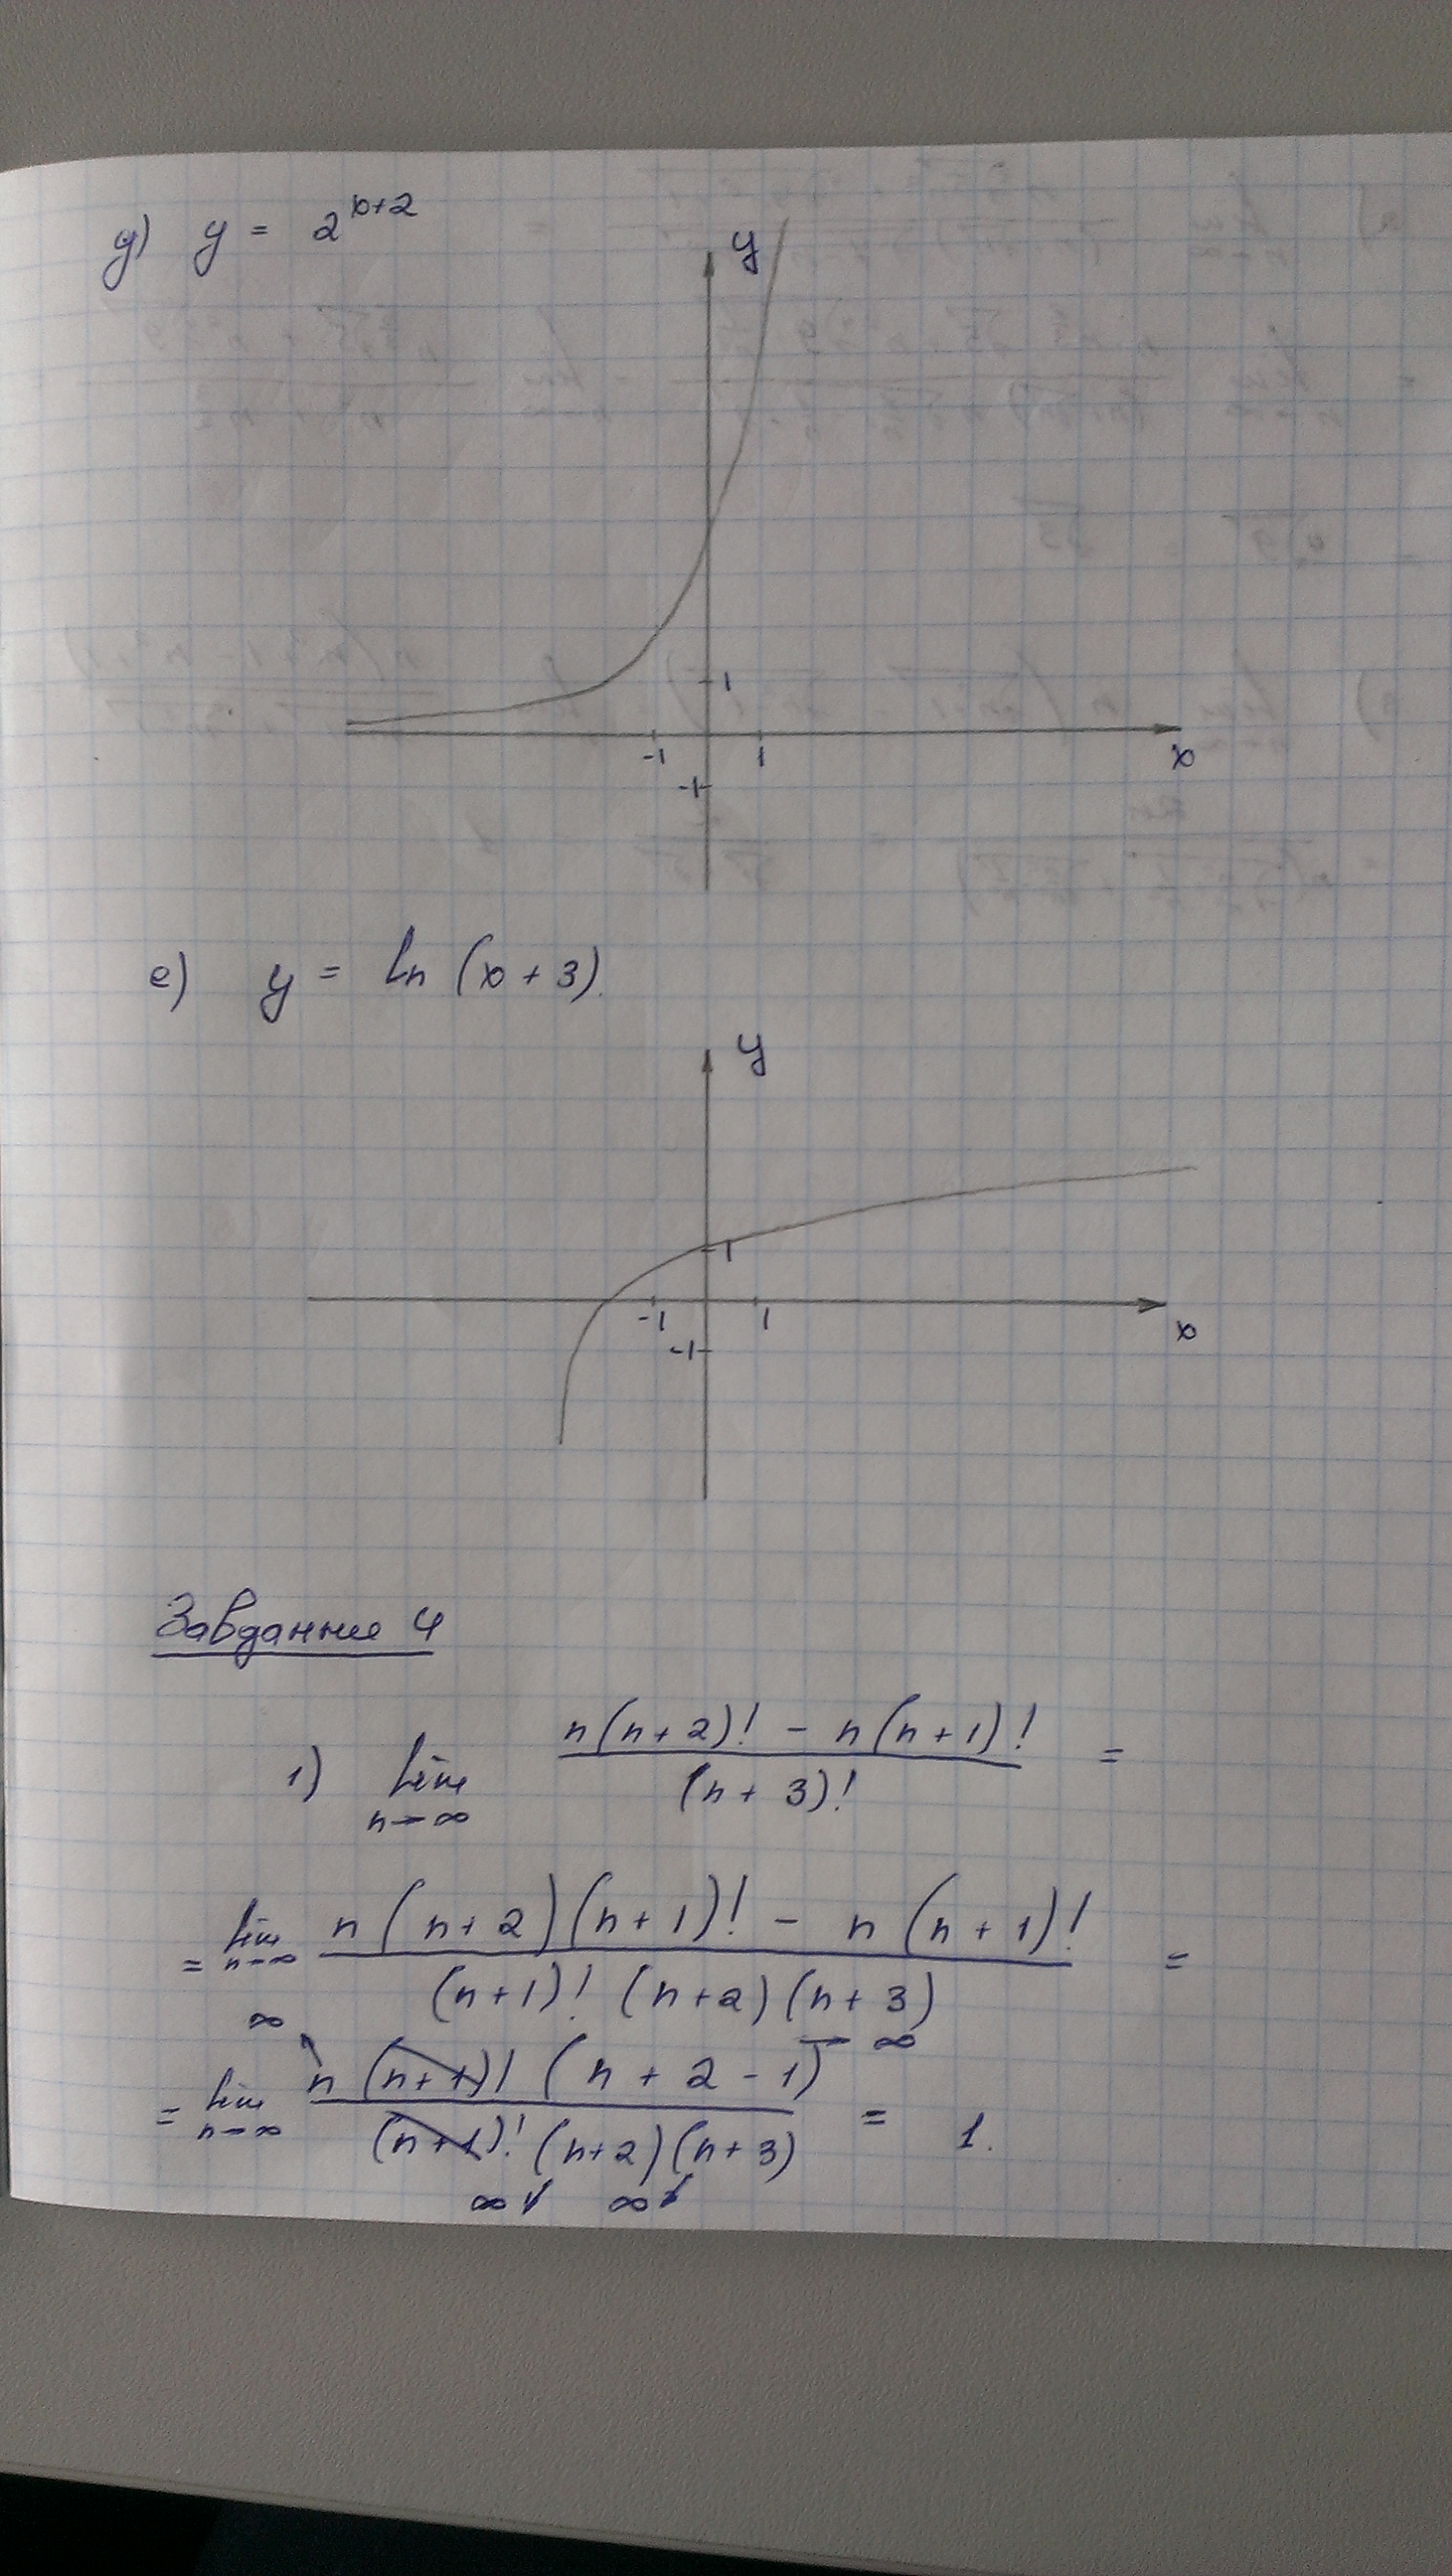 д) y = 2^{x+2}
y
1
-1 1
x
-1
е) y = ln (x + 3)
y
1
-1 1
x
-1
Завдання 4
1) lim_{n→∞} \frac{n(n+2)! - n(n+1)!}{(n+3)!} =
= lim_{n→∞} \frac{n(n+2)(n+1)! - n(n+1)!}{(n+1)! (n+2)(n+3)} =
∞ → ∞
= lim_{n→∞} \frac{n(n+1)! (n+2-1)}{(n+1)! (n+2)(n+3)} = 1.
∞ ∞